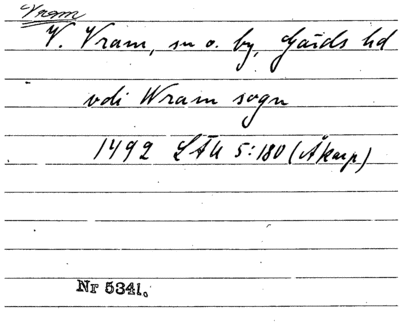 Vram
V. Vram, sn o. by, Gärds hd
vdi Wram sogn
1492 LÄU 5:180 (Åkarp)
Nr 5341.